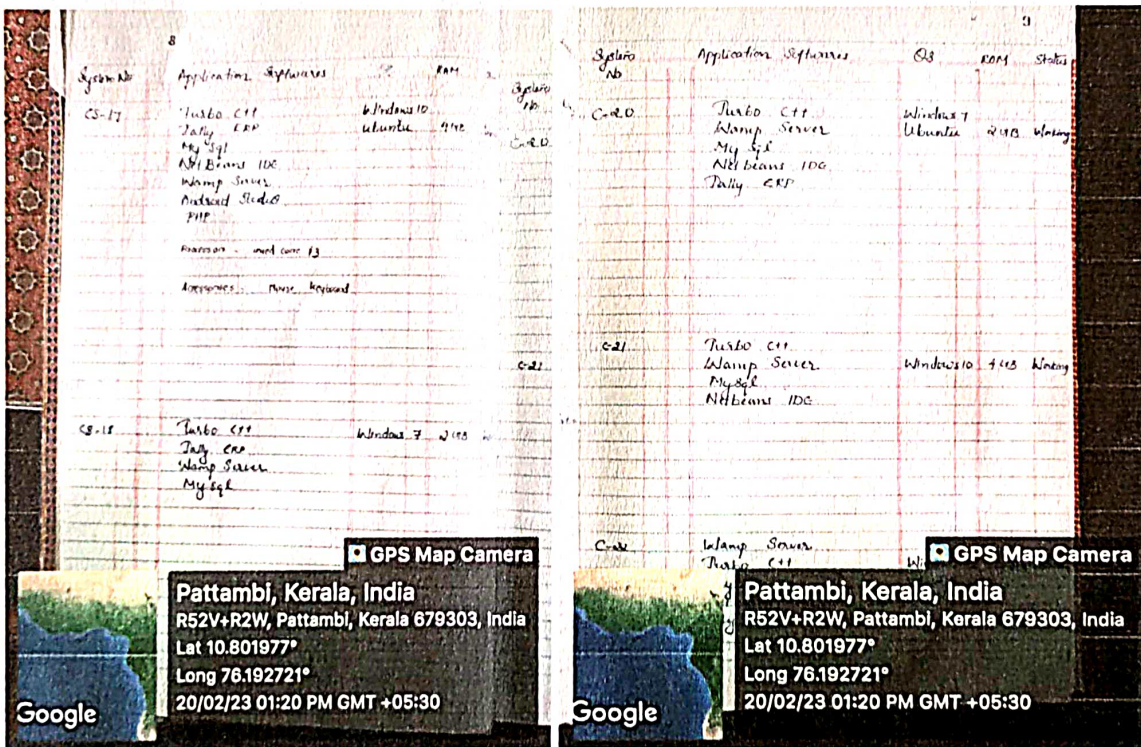 8
System No Application Softwares RAM
CS-17 Turbo C++ Windows 10
Tally ERP Ubuntu 4GB
My Sql
NetBeans IDE
Wamp Server
Android Studio
PHP
Processor - intel core i3
Accessories - Mouse Keyboard
CS-18 Turbo C++ Windows 7 2 GB
Tally ERP
Wamp Server
My Sql
System
No.
C-20
C-21
GPS Map Camera
Pattambi, Kerala, India
R52V+R2W, Pattambi, Kerala 679303, India
Lat 10.801977°
Long 76.192721°
20/02/23 01:20 PM GMT +05:30
Google
9
System Application Softwares OS RAM Status
No
C-20 Turbo C++ Windows 7
Wamp Server Ubuntu 2 GB Working
My Sql
Netbeans IDE
Tally ERP
C-21 Turbo C++
Wamp Server Windows 10 4 GB Working
My Sql
Netbeans IDE
Wamp Server
Turbo C++
GPS Map Camera
Pattambi, Kerala, India
R52V+R2W, Pattambi, Kerala 679303, India
Lat 10.801977°
Long 76.192721°
20/02/23 01:20 PM GMT +05:30
Google